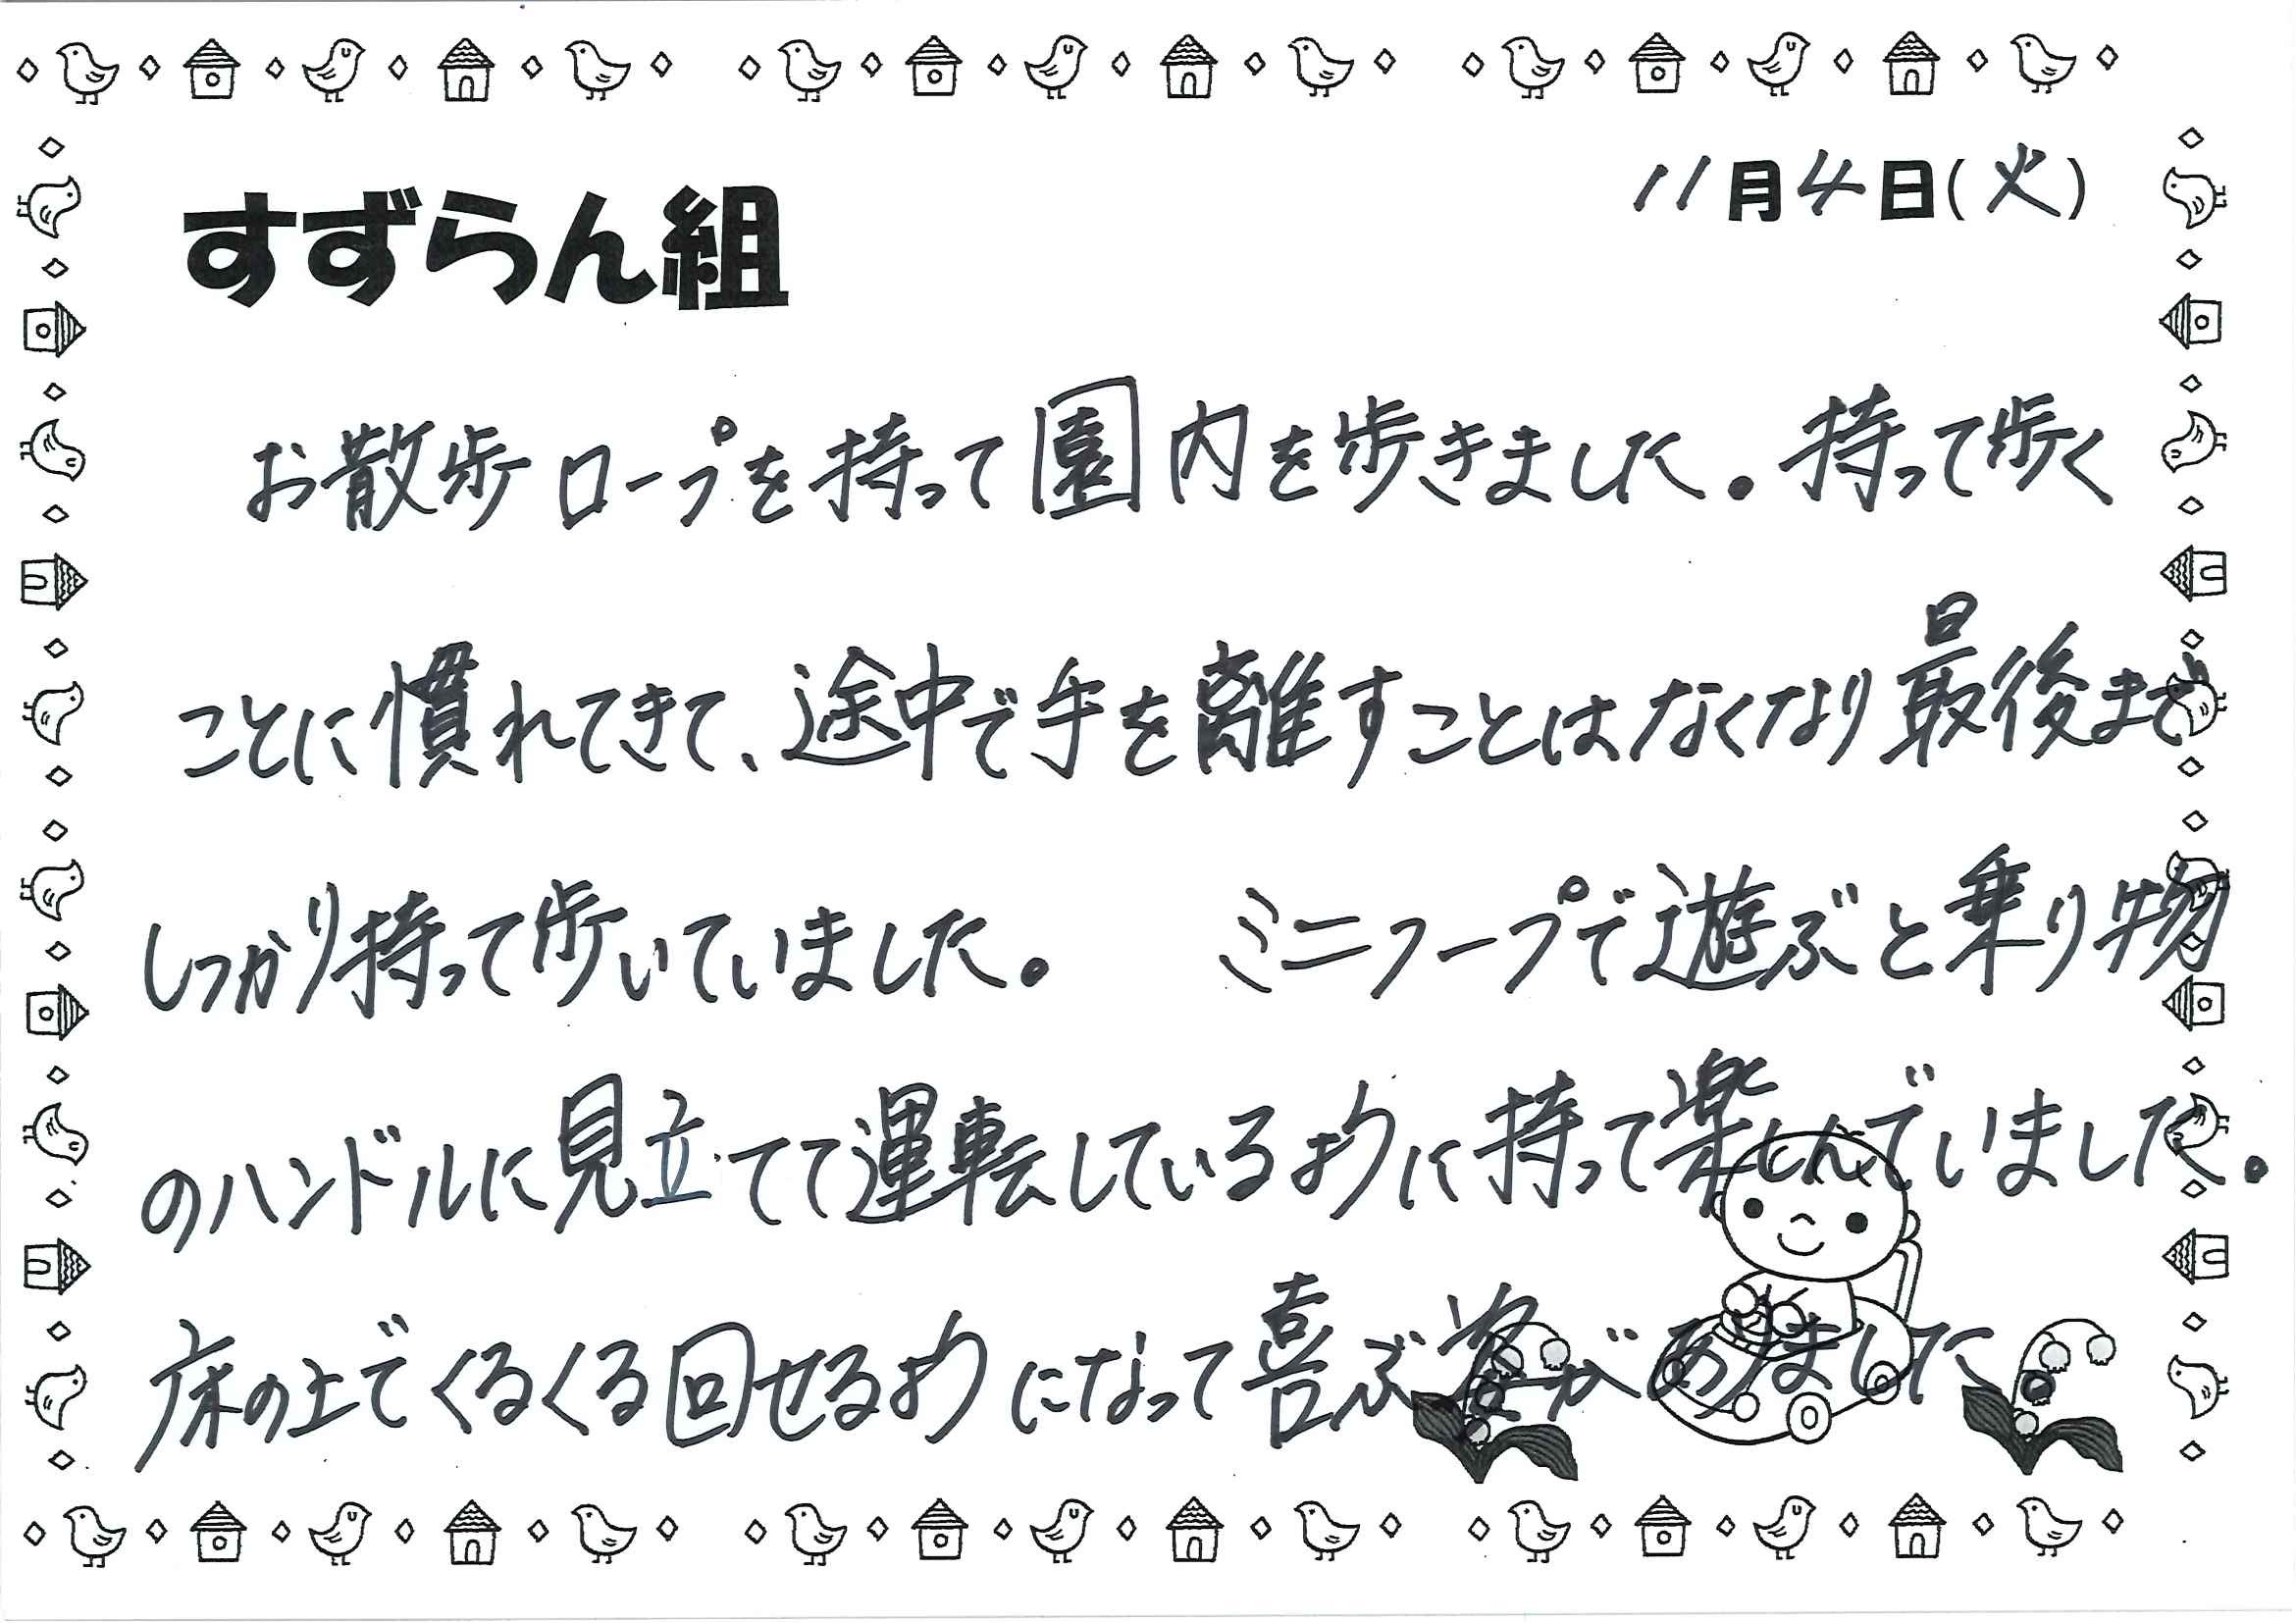 11月4日(火)
すずらん組
お散歩ロープを持って園内を歩きました。持って歩く
ことに慣れてきて、途中で手を離すことはなくなり最後まで
しっかり持って歩いていました。 ミニフープで遊ぶと乗り物
のハンドルに見立てて運転しているように持って楽しんでいました。
床の上でくるくる回せるようになって喜ぶ姿がありました